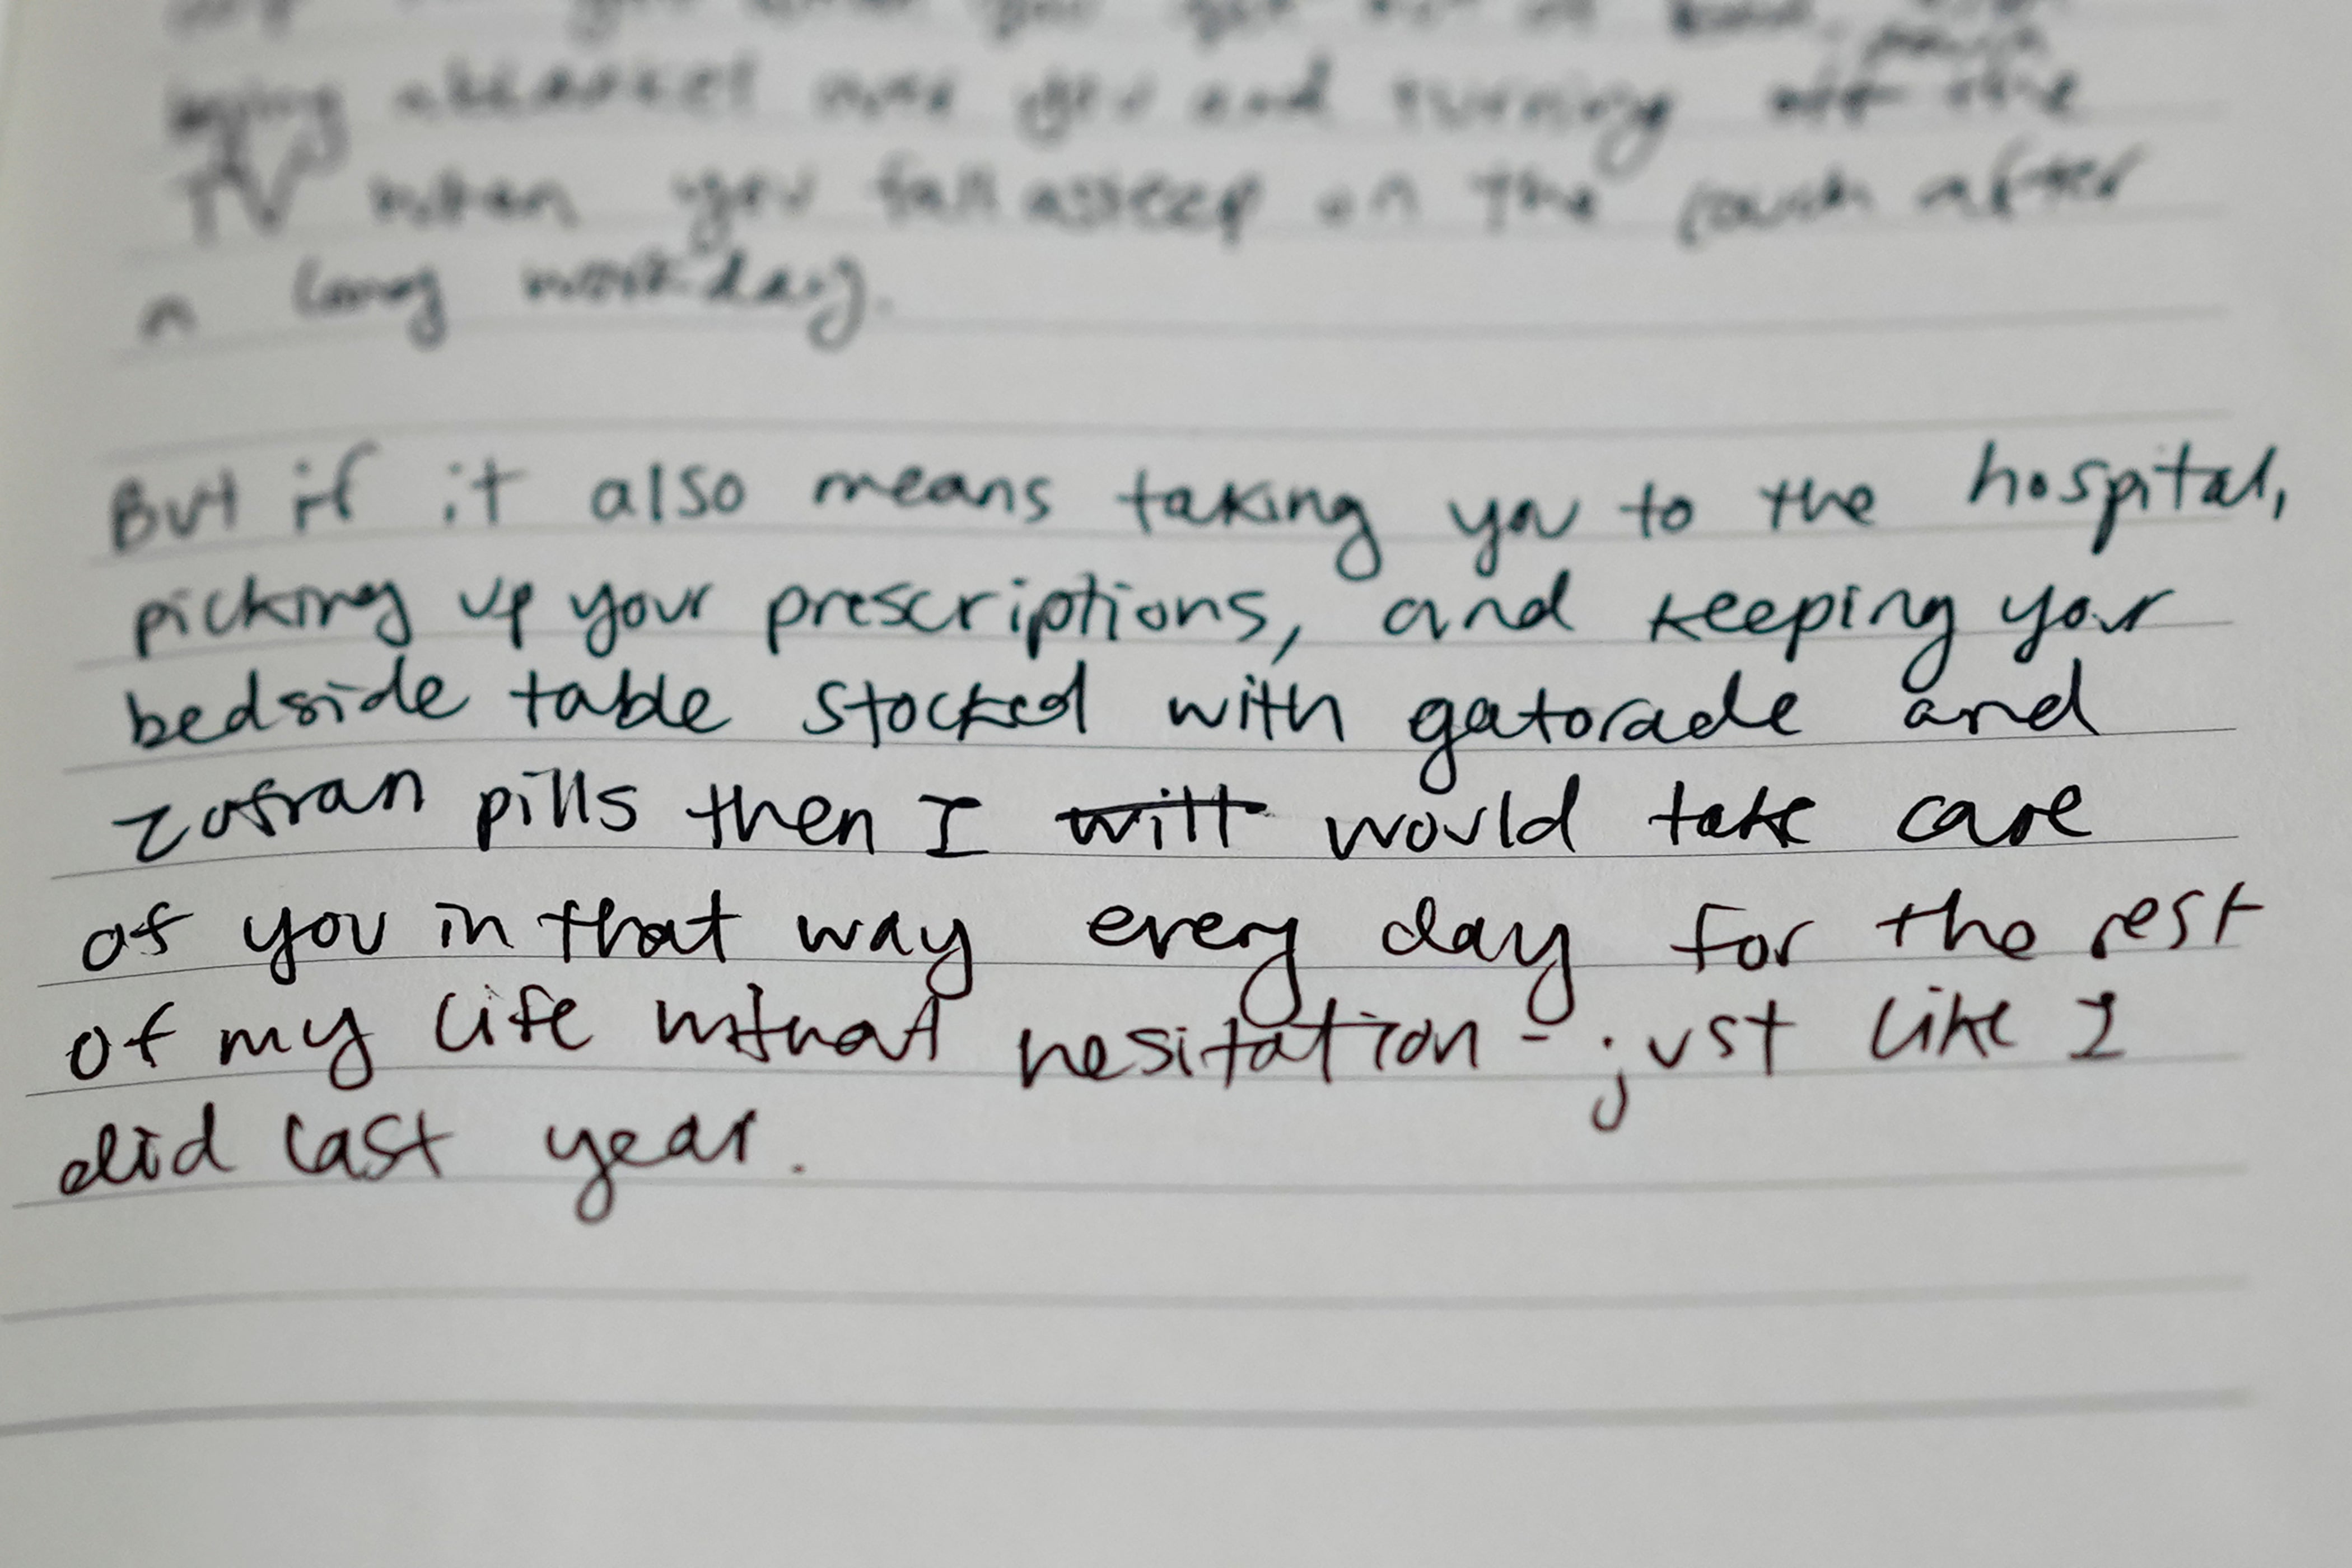 a blanket over you and turning off the
TV when you fall asleep on the couch after
a long workday.
But if it also means taking you to the hospital,
picking up your prescriptions, and keeping your
bedside table stocked with gatorade and
zofran pills then I will would take care
of you in that way every day for the rest
of my life without hesitation - just like I
did last year.